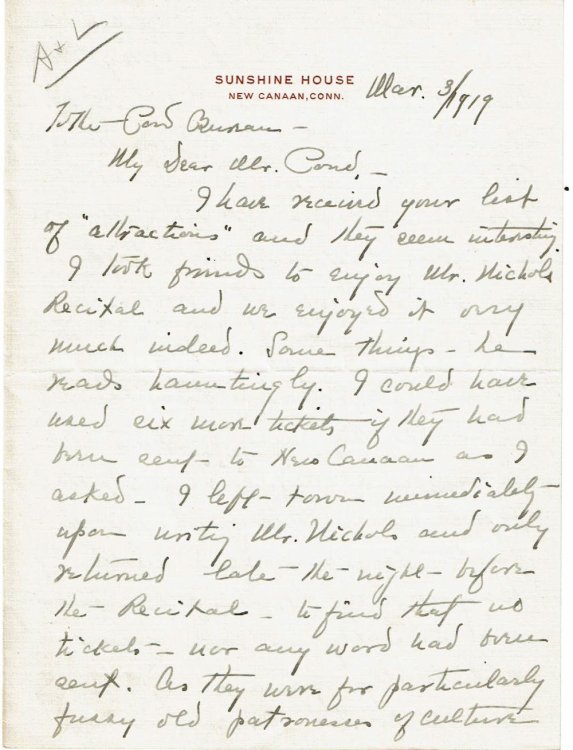 A & L
SUNSHINE HOUSE
NEW CANAAN, CONN.
Mar. 3/1919
To the Pond Bureau –
My Dear Mr. Pond, –
I have received your list
of "attractions" and they seem interesting.
I took friends to enjoy Mr. Nichols
Recital and we enjoyed it very
much indeed. Some things – he
reads hauntingly. I could have
used six more tickets if they had
been sent to New Canaan as I
asked – I left town immediately
upon writing Mr. Nichols and only
returned late the night before
the Recital – to find that no
tickets – nor any word had been
sent. As they were for particularly
fussy old patronesses of culture